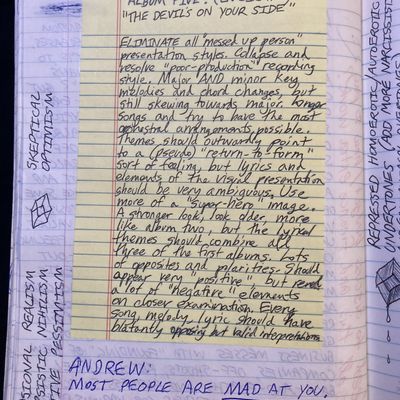 ALBUM FIVE:
"THE DEVILS ON YOUR SIDE"
ELIMINATE all "messed up person"
presentation styles. Collapse and
resolve "poor-production" recording
style. Major AND minor key
melodies and chord changes, but
still skewing towards major. Longer
songs and try to have the most
orchestral arrangements possible.
Themes should outwardly point
to a (pseudo) "return-to-form"
sort of feeling, but lyrics and
elements of the visual presentation
should be very ambiguous. Use
more of a "super-hero" image.
A stronger look, look older, more
like album two, but the lyrical
themes should combine all
three of the first albums. Lots
of opposites and polarities. Should
appear very "positive" but reveal
a lot of "negative" elements
on closer examination. Every
song, melody, lyric should have
blatantly opposing but valid interpretations
ANDREW:
MOST PEOPLE ARE MAD AT YOU.
SKEPTICAL
OPTIMISM
SIONAL REALISM
SSISTIC NIHILISM
TIVE PESSIMISM
REPRESSED HOMOEROTIC/AUTOEROTIC
UNDERTONES (ADD MORE NARCISSIST
OVERTONES)